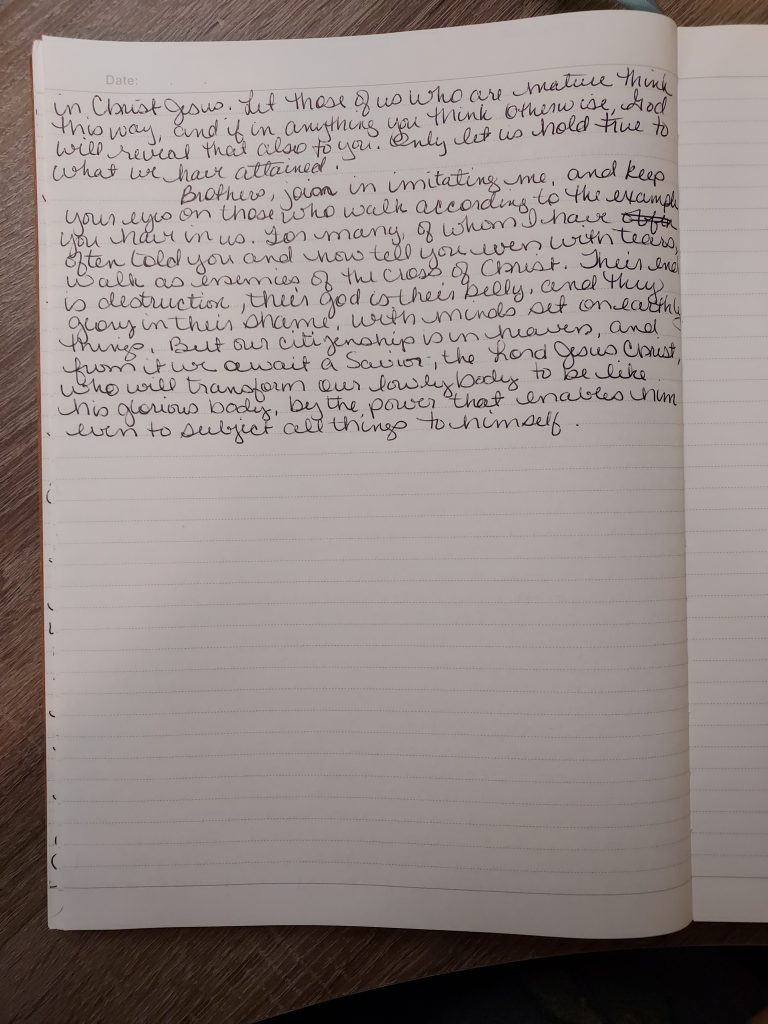 Date:
in Christ Jesus. Let those of us who are mature think
this way, and if in anything you think otherwise, God
will reveal that also to you. Only let us hold true to
what we have attained.
Brothers, join in imitating me, and keep
your eyes on those who walk according to the example
you have in us. For many, of whom I have
often told you and now tell you even with tears,
walk as enemies of the cross of Christ. Their end
is destruction, their god is their belly, and they
glory in their shame, with minds set on earthly
things. But our citizenship is in heaven, and
from it we await a Savior, the Lord Jesus Christ,
who will transform our lowly body to be like
his glorious body, by the power that enables him
even to subject all things to himself.